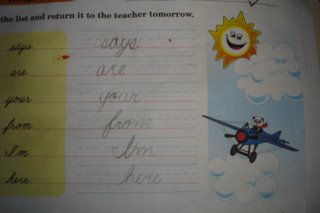 the list and return it to the teacher tomorrow.
says says
are are
your your
from from
I'm I'm
here here